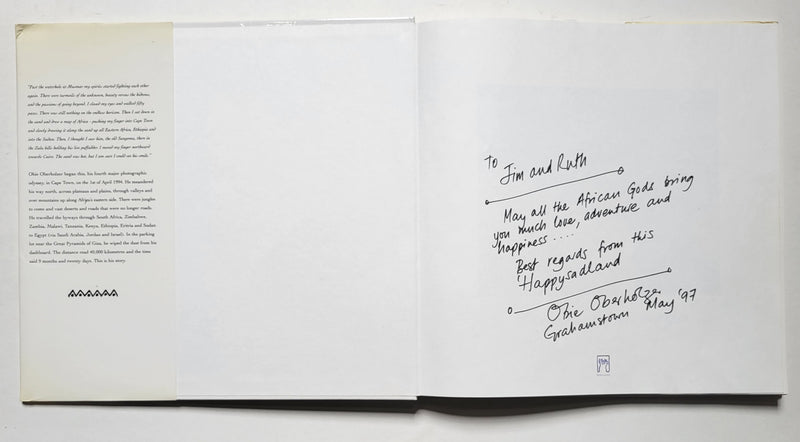 "Past the waterhole at Msuenas my spirits started fighting each other
again. There were turmoils of the unknown, beauty versus the hideous,
and the passions of going beyond. I closed my eyes and walked fifty
paces. There was still nothing on the endless horizon. Then I sat down in
the sand and drew a map of Africa - pushing my finger into Cape Town
and slowly drawing it along the sand up all Eastern Africa, Ethiopia and
into the Sudan. Then, I thought I saw him, the old Sangoma, there in
the Zulu hills holding his live puffadder. I moved my finger northward
towards Cairo. The sand was hot, but I am sure I could see his smile."
Obie Oberholzer began this, his fourth major photographic
odyssey, in Cape Town, on the 1st of April 1994. He meandered
his way north, across plateaus and plains, through valleys and
over mountains up along Africa's eastern side. There were jungles
to come and vast deserts and roads that were no longer roads.
He travelled the byways through South Africa, Zimbabwe,
Zambia, Malawi, Tanzania, Kenya, Ethiopia, Eritrea and Sudan
to Egypt (via Saudi Arabia, Jordan and Israel). In the parking
lot near the Great Pyramids of Giza, he wiped the dust from his
dashboard. The distance read 40,000 kilometres and the time
said 5 months and twenty days. This is his story.
To Jim and Ruth
May all the African Gods bring
you much love, adventure and
happiness ....
Best regards from this
'Happysadland
Obie Oberholzer
Grahamstown May '97